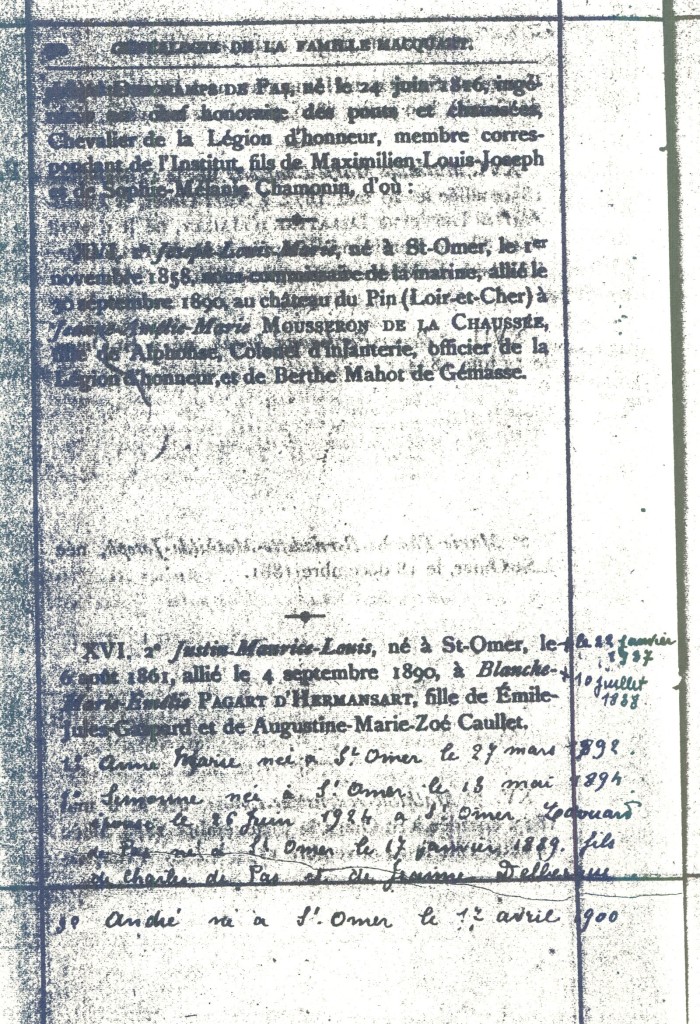 GÉNÉALOGIE DE LA FAMILLE MACQUART.
DESCHAMPS DE PAS, né le 24 juin 1816, ingé-
chef honoraire des ponts et chaussées,
Chevalier de la Légion d'honneur, membre corres-
pondant de l'Institut, fils de Maximilien-Louis-Joseph
et de Sophie-Mélanie Chamonin, d'où :
XVI. 1º Joseph-Louis-Marie, né à St-Omer, le 1er
novembre 1858, sous-commissaire de la marine, allié le
30 septembre 1890, au château du Pin (Loir-et-Cher) à
Jeanne-Amélie-Marie MOUSSERON DE LA CHAUSSÉE,
fille de Alphonse, Colonel d'infanterie, officier de la
Légion d'honneur, et de Berthe Mahot de Gémasse.
XVI. 2º Justin-Maurice-Louis, né à St-Omer, le
6 août 1861, allié le 4 septembre 1890, à Blanche-
Marie-Emélie PAGART D'HERMANSART, fille de Émile-
Jules-Gaspard et de Augustine-Marie-Zoé Caullet.
+ le 22 janvier
1937
+ 10 juillet
1º Anne Marie née à St Omer le 27 mars 1892.
Simonne née à St Omer le 18 mai 1894
épouse le 26 juin 1924 à St Omer Edouard
de Pas né à St Omer le 17 janvier 1889. fils
de Charles de Pas et de Jeanne
3º André né à St Omer le 12 avril 1900